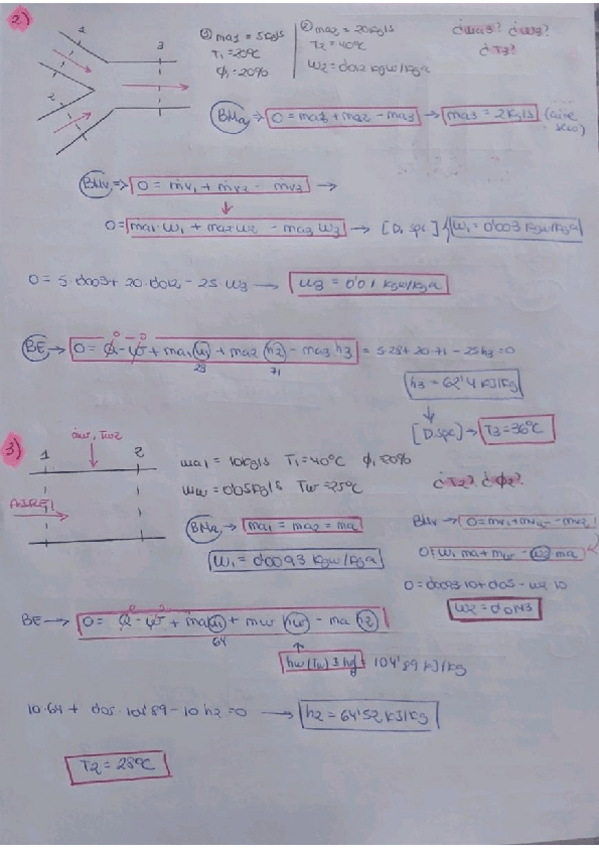 2)
1
2
3
① ma1 = 5kg/s
T1 = 20ºC
ϕ1 = 20%
② ma2 = 20kg/s
T2 = 40ºC
w2 = 0'012 kgw/kga
¿ma3? ¿w3?
¿T3?
BMa → 0 = ma1 + ma2 - ma3 → ma3 = 2 kg/s (aire seco)
BMv => 0 = mv1 + mv2 - mv3 →
0 = ma1·w1 + ma2 w2 - ma3 w3 → [D. spc] w1 = 0'003 kgw/kga
0 = 5·0'003 + 20·0'012 - 25·w3 → w3 = 0'01 kgw/kga
BE → 0 = Q - W + ma1 h1 + ma2 h2 - ma3 h3 = 5·28 + 20·71 - 25h3 = 0
0 0
28 71
h3 = 62'4 kJ/kg
[D. spc] → T3 = 36ºC
3)
mw, Tw2
1 2
AIRE
ma1 = 10kg/s T1 = 40ºC ϕ1 = 20%
mw = 0'05kg/s Tw = 25ºC
¿T2? ¿ϕ2?
BMa → ma1 = ma2 = ma
BMv → 0 = mv1 + mw - mv2
w1 = 0'0093 kgw/kga
0 = w1 ma + mw - w2 ma
0 = 0'0093·10 + 0'05 - w2·10
w2 = 0'0143
BE → 0 = Q - W + ma h1 + mw hw - ma h2
0 0
64
hw (Tw) = hf = 104'89 kJ/kg
10·64 + 0'05·104'89 - 10 h2 = 0 → h2 = 64'52 kJ/kg
T2 = 28ºC